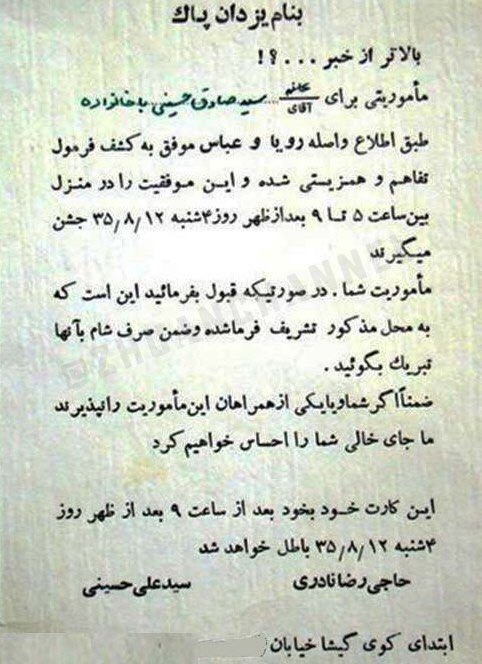 بنام یزدان پاك
بالاتر از خبر ...؟!
مأموریتی برای خانم آقای سید صادق حسینی باخانواده
طبق اطلاع واصله رویا و عباس موفق به کشف فرمول
تفاهم و همزیستی شده و این موفقیت را در منزل
بین‌ساعت ۵ تا ۹ بعدازظهر روز ۴شنبه ۳۵٫۸٫۱۲ جشن
میگیرند
مأموریت شما . در صورتیکه قبول بفرمائید این است که
به محل مذکور تشریف فرماشده وضمن صرف شام بآنها
تبریك بگوئید .
ضمناً اگر شما و یا یکی از همراهان این مأموریت را نپذیرند
ما جای خالی شما را احساس خواهیم کرد
این کارت خود بخود بعد از ساعت ۹ بعد از ظهر روز
۴شنبه ۳۵٫۸٫۱۲ باطل خواهد شد
حاجی رضا نادری سید علی حسینی
ابتدای کوی گیشا خیابان